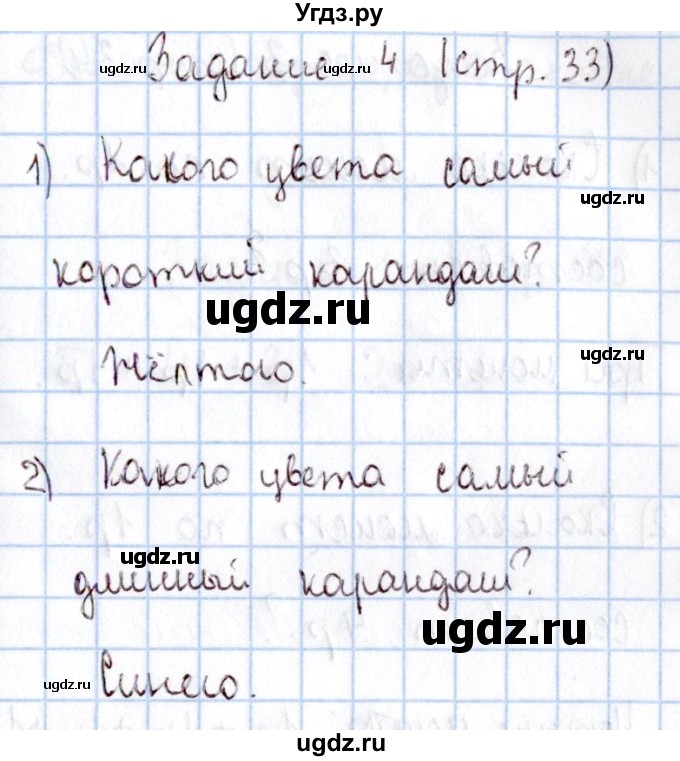 Угдз.ру
Задание 4 (стр. 33)
ugdz.ru
ugdz.ru
1) Какого цвета самый
ugdz.ru
короткий карандаш?
ugdz.ru
Жёлтого.
ugdz.ru
2) Какого цвета самый
ugdz.ru
длинный карандаш?
ugdz.ru
Синего.
ugdz.ru
ugdz.ru